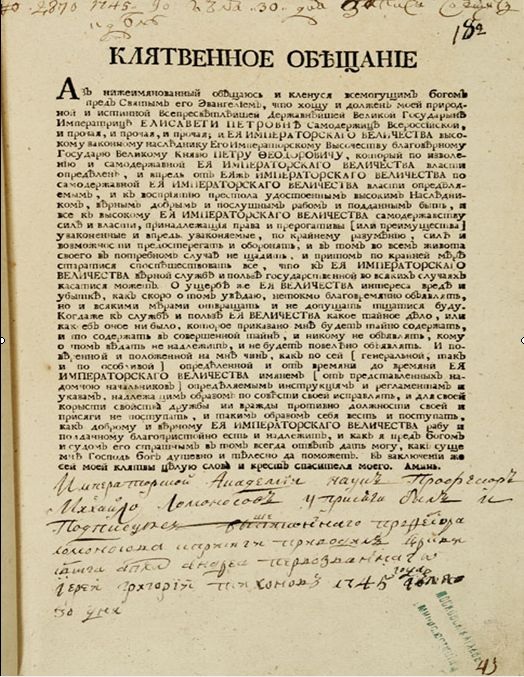 2870 1745
182
КЛЯТВЕННОЕ ОБѢЩАНІЕ
Азъ нижеимянованный обѣщаюсь и кленуся всемогущимъ богомъ
предъ Святымъ его Эвангелиемъ, что хощу и долженъ моей природ-
ной и истинной Всепресвѣтлѣйшей Державнѣйшей Великой Государынѣ
Императрицѣ ЕЛИСАВЕТѢ ПЕТРОВНѢ Самодержицѣ Всероссійской,
и прочая, и прочая, и прочая; и ЕЯ ИМПЕРАТОРСКАГО ВЕЛИЧЕСТВА высо-
кому законному наслѣднику Его Императорскому Высочеству благовѣрному
Государю Великому Князю ПЕТРУ ѲЕОДОРОВИЧУ, который по изволе-
нію и самодержавной ЕЯ ИМПЕРАТОРСКАГО ВЕЛИЧЕСТВА власти
опредѣленъ, и впредь отъ ЕЯжъ ИМПЕРАТОРСКАГО ВЕЛИЧЕСТВА по
самодержавной ЕЯ ИМПЕРАТОРСКАГО ВЕЛИЧЕСТВА власти опредѣля-
емымъ, и къ воспріятію престола удостоеннымъ высокимъ Наслѣдни-
комъ, вѣрнымъ добрымъ и послушнымъ рабомъ и подданнымъ быть, и
все къ высокому ЕЯ ИМПЕРАТОРСКАГО ВЕЛИЧЕСТВА самодержавству
силѣ и власти, принадлежащія права и прерогативы [или преимущества]
узаконенные и впредь узаконяемые, по крайнему разумѣнию, силѣ и
возможности предостерегать и оборонять, и въ томъ во всемъ живота
своего въ потребномъ случаѣ не щадить, и притомъ по крайней мѣрѣ
старатися споспѣшествовать все, что къ ЕЯ ИМПЕРАТОРСКАГО
ВЕЛИЧЕСТВА вѣрной службѣ и пользѣ государственной во всякихъ случаяхъ
касатися можетъ. О ущербѣ же ЕЯ ВЕЛИЧЕСТВА интереса вредѣ и
убыткѣ, какъ скоро о томъ увѣдаю, нетокмо благовременно обьявлять,
но и всякими мѣрами отвращать и не допущать тщатися буду.
Когдаже къ службѣ и пользѣ ЕЯ ВЕЛИЧЕСТВА какое тайное дѣло, или
какъ ебъ оное ни было, которое приказано мнѣ будетъ тайно содержать,
и то содержать въ совершенной тайнѣ, и никому не обьявлять, кому
о томъ вѣдать не надлежитъ, и не будетъ повелѣно обьявлять. И по-
вѣренной и положенной на мнѣ чинъ, какъ по сей [ генеральной, такъ
и по особливой ] опредѣленной и отъ времяни до времяни ЕЯ
ИМПЕРАТОРСКАГО ВЕЛИЧЕСТВА имянемъ [ отъ представленныхъ на-
домчою начальниковъ ] опредѣляемымъ инструкціямъ и регламентамъ и
указамъ, надлежащимъ образомъ по совѣсти своей исправлять, и для своей
корысти свойства дружбы ни вражды противно должности своей и
присяги не поступать, и такимъ образомъ себя вести и поступать,
какъ доброму и вѣрному ЕЯ ИМПЕРАТОРСКАГО ВЕЛИЧЕСТВА рабу и
подданному благопристойно есть и надлежитъ, и какъ я предъ богомъ
и судомъ его страшнымъ въ томъ всегда отвѣтъ дать могу, какъ суще
мнѣ Господь богъ душевно и тѣлесно да поможетъ. Въ заключеніи же
сей моей клятвы цѣлую слова и крестъ спасителя моего. Аминь.
Императорской Академіи наукъ Профессоръ
Михайло Ломоносовъ у присяги былъ и
Подписуется
Ломоносова
Андрея Первозваннаго
іерей Григорій Тихоновъ 1745 года
30 дня
43